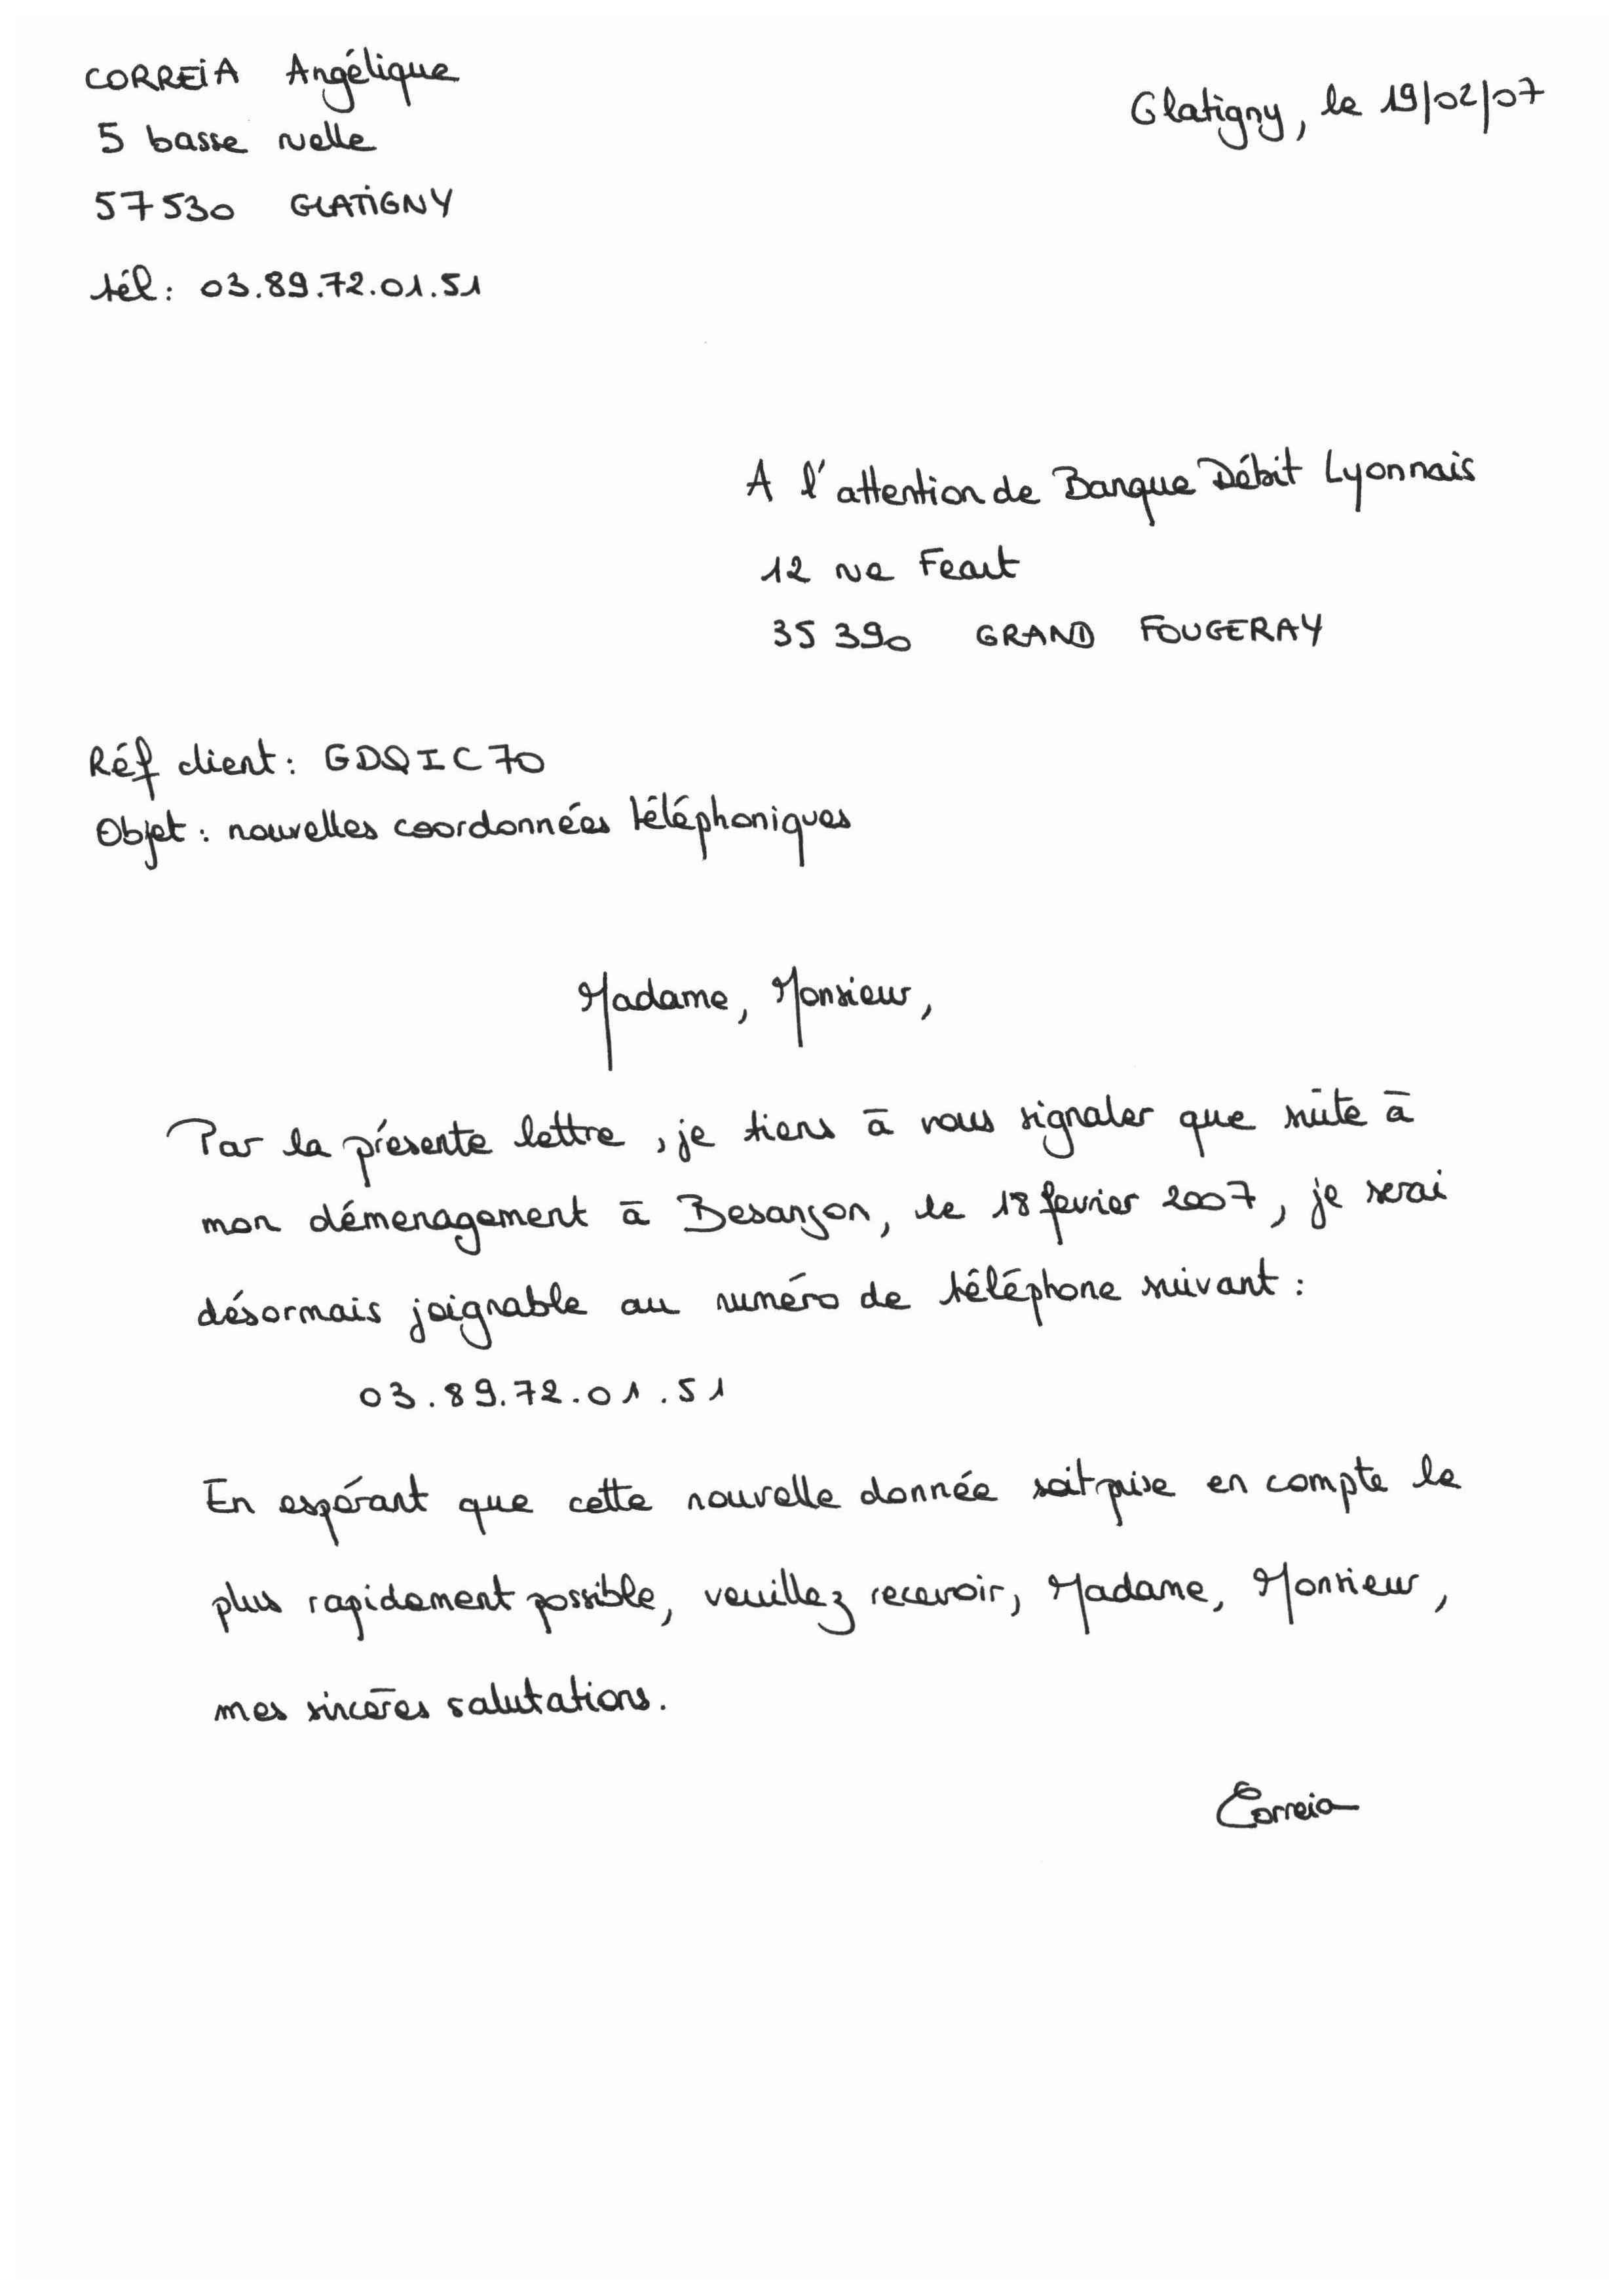 CORREIA Angélique
5 basse ruelle
57530 GLATIGNY
tél : 03.89.72.01.51
Glatigny, le 19/02/07
A l'attention de Banque Débit Lyonnais
12 rue Feart
35 390 GRAND FOUGERAY
Réf client : GDQIC70
Objet : nouvelles coordonnées téléphoniques
Madame, Monsieur,
Par la présente lettre, je tiens à vous signaler que suite à
mon démenagement à Besançon, le 18 fevrier 2007, je serai
désormais joignable au numéro de téléphone suivant :
03.89.72.01.51
En espérant que cette nouvelle donnée soit prise en compte le
plus rapidement possible, veuillez recevoir, Madame, Monsieur,
mes sincères salutations.
Correia